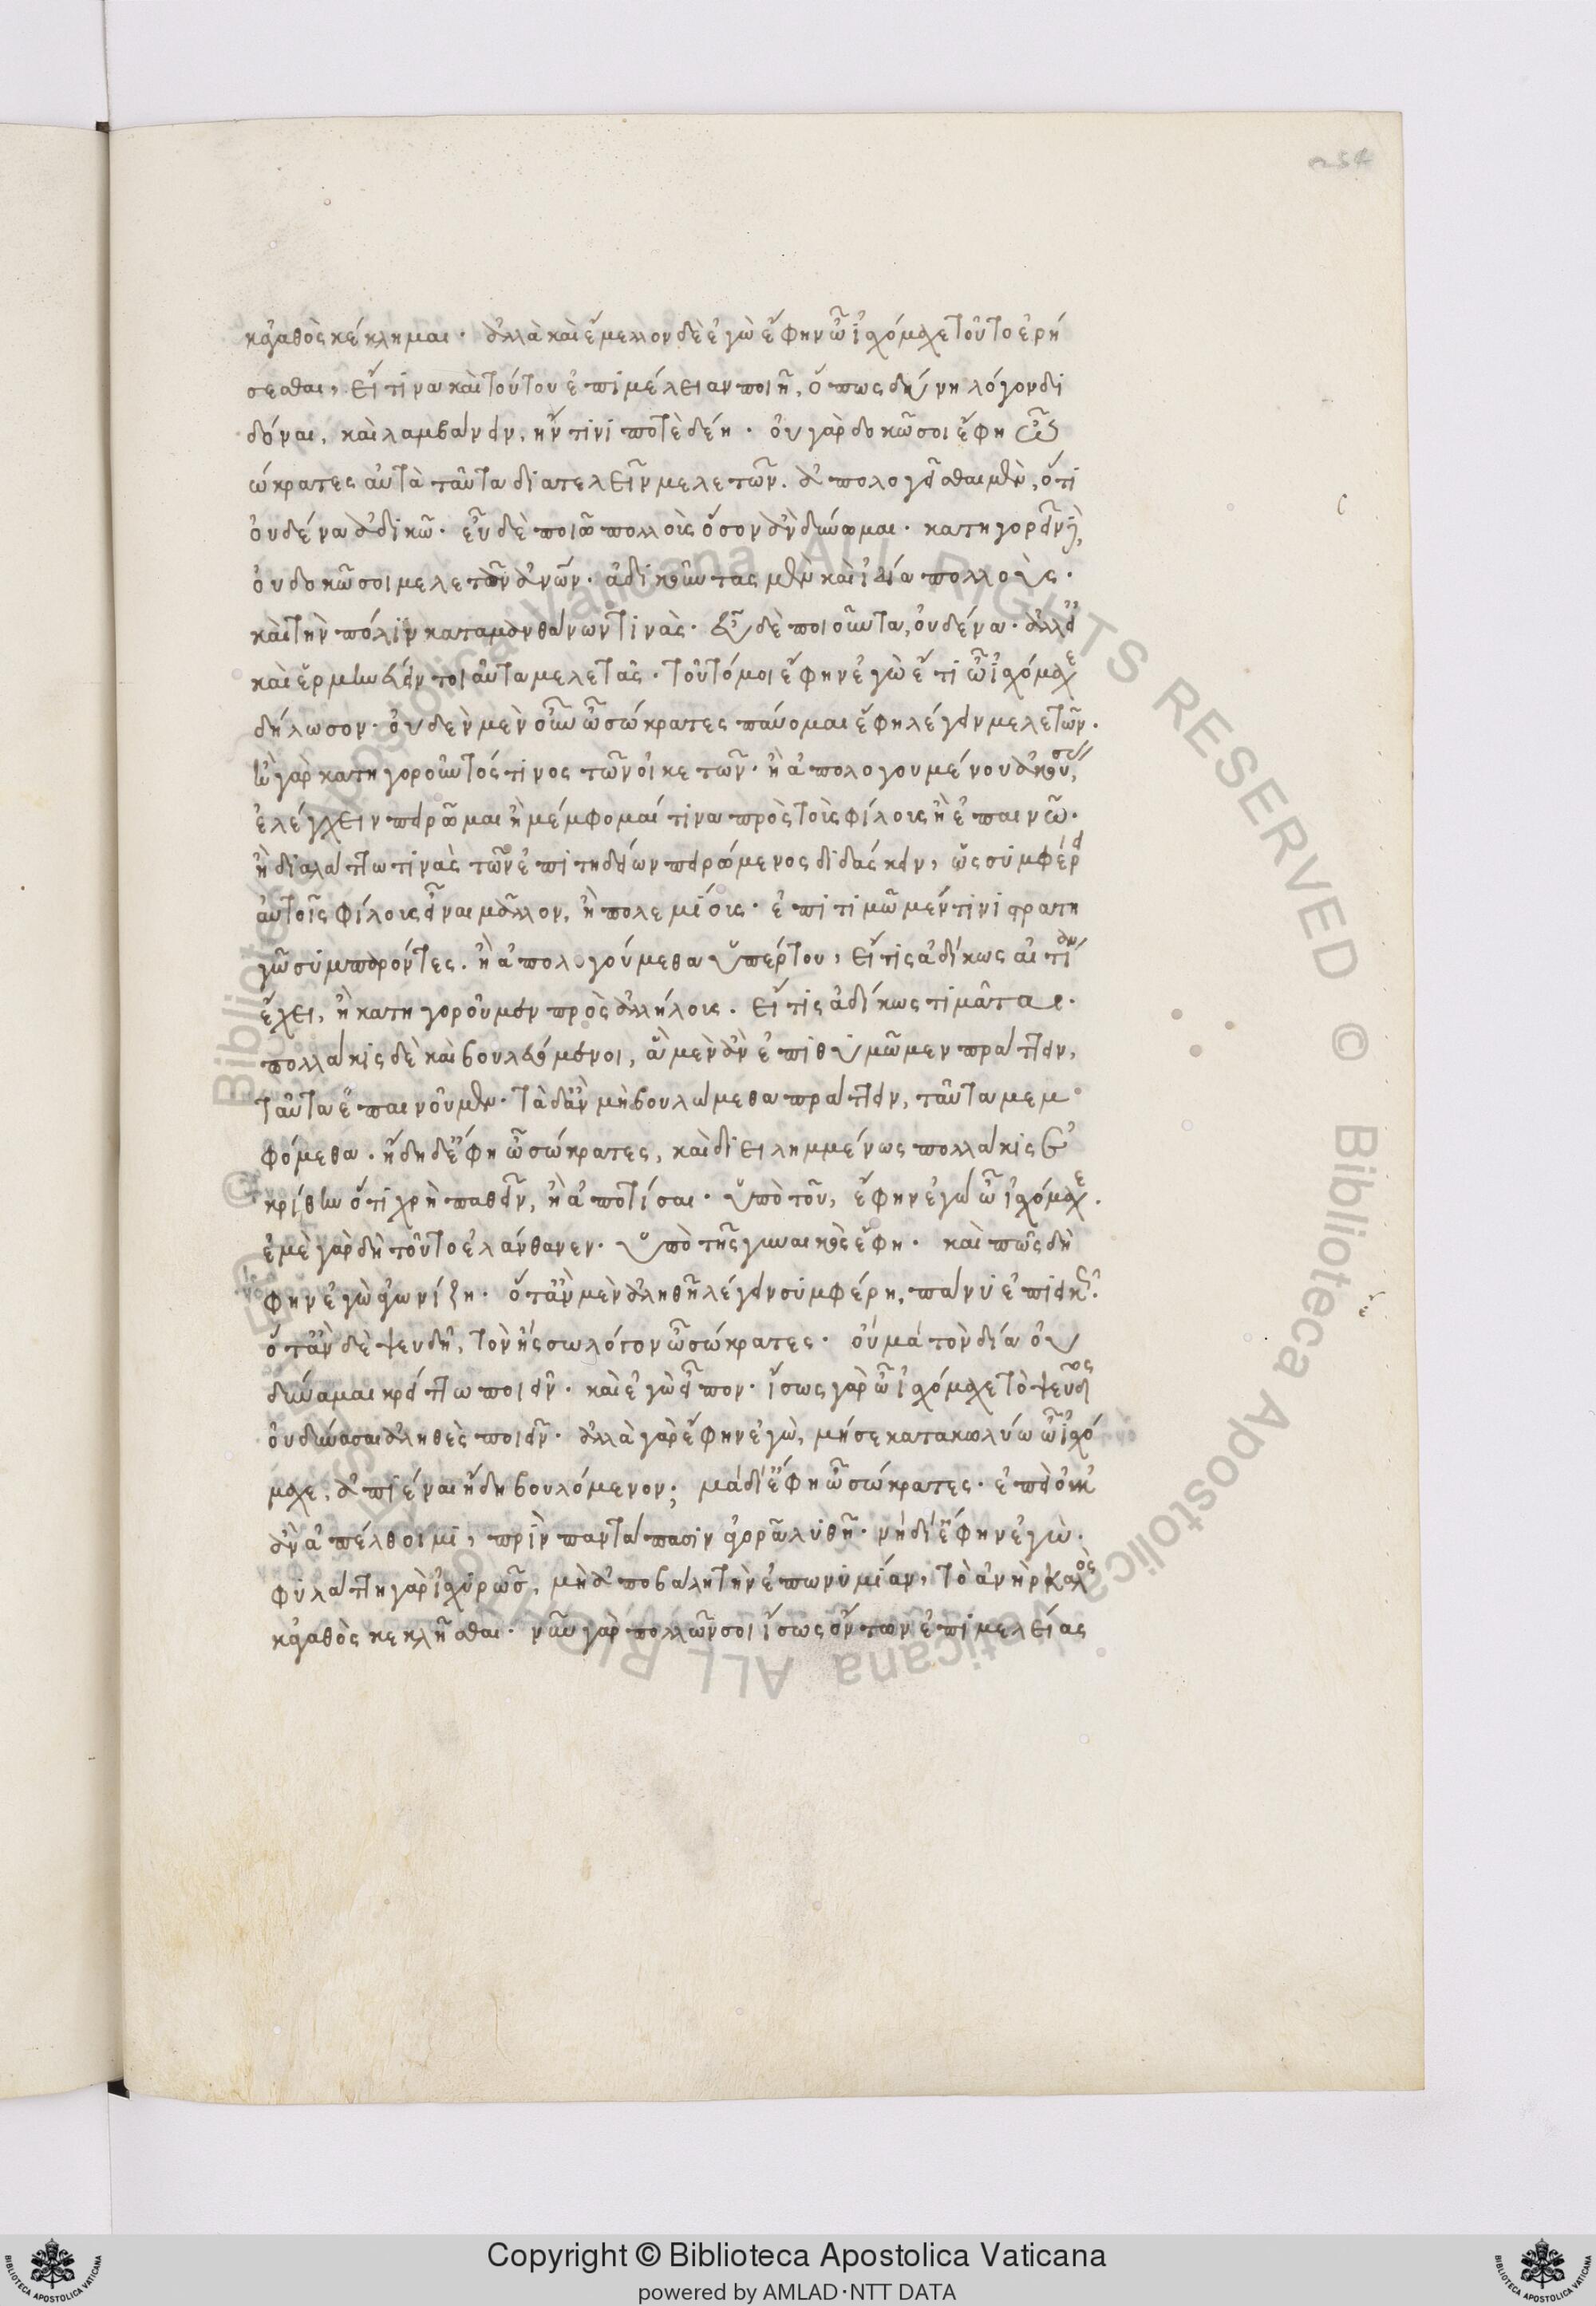 κἀγαθὸς κέκλημαι· ἀλλὰ καὶ ἔμελλον δὲ ἐγὼ ἔφην ὦ ἰσχόμαχε τοῦτο ἐρή
σεσθαι, εἴ τινα καὶ τούτου ἐπιμέλειαν ποιῇ, ὅπως δύνῃ λόγον δι
δόναι, καὶ λαμβάνειν, ἤν τινι ποτὲ δέῃ· οὐ γὰρ δοκῶ σοι ἔφη ὦ σ
ώκρατες αὐτὰ ταῦτα διατελεῖν μελετῶν. ἀπολογεῖσθαι μὲν, ὅτι
οὐδένα ἀδικῶ· εὖ δὲ ποιῶ πολλοὺς ὅσον ἂν δύνωμαι· κατηγορεῖν δὲ,
οὐ δοκῶ σοι μελετᾶν ἀνῶν· ἀδικοῦντας μὲν καὶ ἰδία πολλοὺς·
καὶ τὴν πόλιν καταμανθάνων τινὰς· εὖ δὲ ποιοῦντα, οὐδένα· ἀλλ' εἰ
καὶ ἑρμηνεύειν τοιαῦτα μελετᾶς· τοῦτό μοι ἔφην ἐγὼ ἔτι ὦ ἰσχόμαχε
δήλωσον· οὐδὲν μὲν οὖν ὦ σώκρατες παύομαι ἔφη λέγειν μελετῶν.
ἢ γὰρ κατηγοροῦντός τινος τῶν οἰκετῶν· ἢ ἀπολογουμένου ἀκούσας,
ἐλέγχειν πειρῶμαι ἢ μέμφομαί τινα πρὸς τοὺς φίλους ἢ ἐπαινῶ·
ἢ διαλάττω τινὰς τῶν ἐπιτηδείων πειρώμενος διδάσκειν, ὡς συμφέρει
αὐτοῖς φίλους εἶναι μᾶλλον, ἢ πολεμίους· ἐπιτιμῶμέν τινι στρατη
γῷ συμπαρόντες. ἢ ἀπολογούμεθα ὑπέρ του, εἴ τις ἀδίκως αἰτίαν
ἔχει, ἢ κατηγοροῦμεν πρὸς ἀλλήλους. εἴ τις ἀδίκως τιμᾶται.
πολλάκις δὲ καὶ βουλευόμενοι, ἃ μὲν ἂν ἐπιθυμῶμεν πράττειν,
ταῦτα ἐπαινοῦμεν· τὰ δ' ἂν μὴ βουλώμεθα πράττειν, ταῦτα μεμ
φόμεθα. ἤδη δ' ἔφη ὦ σώκρατες, καὶ διειλημμένως πολλάκις ἐ
κρίθην ὅτι χρὴ παθεῖν, ἢ ἀποτίσαι· ὑπὸ τοῦ, ἔφην ἐγὼ ὦ ἰσχόμαχε.
ἐμὲ γὰρ δὴ τοῦτο ἐλάνθανεν· ὑπὸ τῆς γυναικὸς ἔφη· καὶ πῶς δὴ
φην ἐγὼ ἀγωνίζη· ὅτ' ἂν μὲν ἀληθῆ λέγειν συμφέρη, πάνυ ἐπιεικῶς.
ὅτ' ἂν δὲ ψευδῆ, τὸν ἥσσω λόγον ὦ σώκρατες· οὐ μὰ τὸν δία οὐ
δύναμαι κρείττω ποιεῖν. καὶ ἐγὼ εἶπον· ἴσως γὰρ ὦ ἰσχόμαχε τὸ ψεῦδος
οὐ δύνασαι ἀληθὲς ποιεῖν· ἀλλὰ γὰρ ἔφην ἐγὼ, μή σε κατακωλύω ὦ ἰσχό
μαχε, ἀπιέναι ἤδη βουλόμενον; μὰ δί' ἔφη ὦ σώκρατες· ἐπεὶ οὐκ
ἂν ἀπέλθοιμι, πρὶν παντάπασιν ἀγορὰ λυθῆ· νὴ δί' ἔφην ἐγὼ·
φυλάττη γὰρ ἰσχυρῶς, μὴ ἀποβάλη τὴν ἐπωνυμίαν, τὸ ἀνὴρ καλὸς
κἀγαθὸς κεκλῆσθαι· νῦν γὰρ πολλῶν σοι ἴσως ὄντων ἐπιμελείας
Copyright © Biblioteca Apostolica Vaticana
powered by AMLAD·NTT DATA